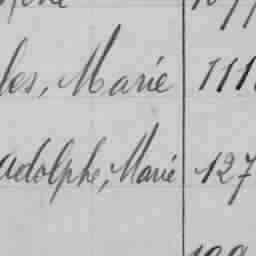 les, Marie 111
adolphe, Marie 127